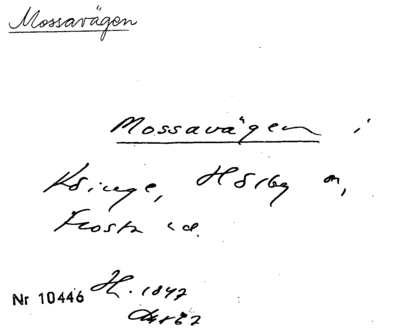 Mossavägen
Mossavägen i
Ksinge, Hörby sn,
Frosta hd.
Nr 10446 H. 1847